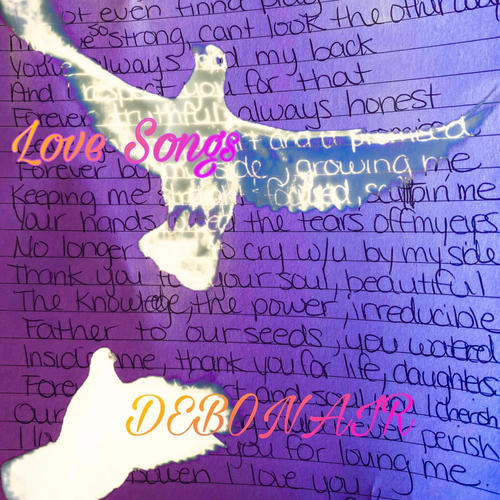 not even finna play
so
strong, cant look the other way
always had my back
And i respect you for that
Forever truthful, always honest
Love Songs
and u promised
Forever by my side, growing me
Keeping me, scalpin me
Your hands the tears off my eyes
No longer cry w/u by my side
Thank you your soul, beautiful
The knowledge, the power, irreducible
Father to our seeds, you watered
Inside me, thank you for life, daughters
and soul I cherish
DEBONAIR
Our perish
I you for loving me.
I love you.